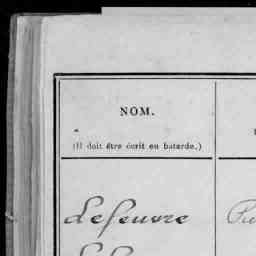 NOM.
(Il doit être écrit en batarde.)
Lefeuvre